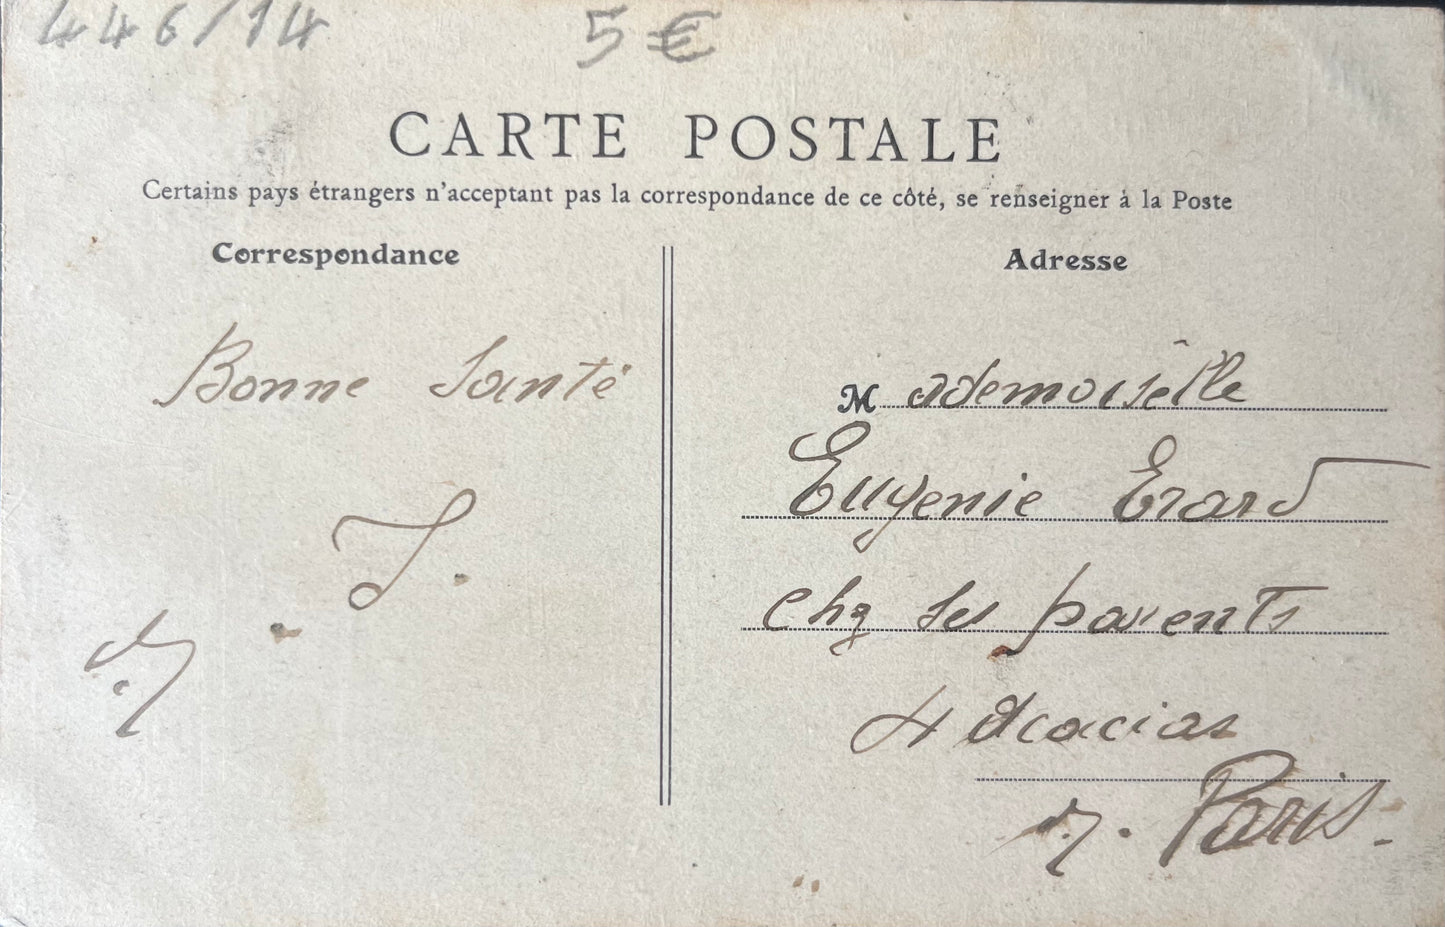 446/14 5 €
CARTE POSTALE
Certains pays étrangers n'acceptant pas la correspondance de ce côté, se renseigner à la Poste
Correspondance
Bonne Santé
J.
Adresse
Mademoiselle
Eugenie Erard
Chz ses parents
4 Acacias
Paris.